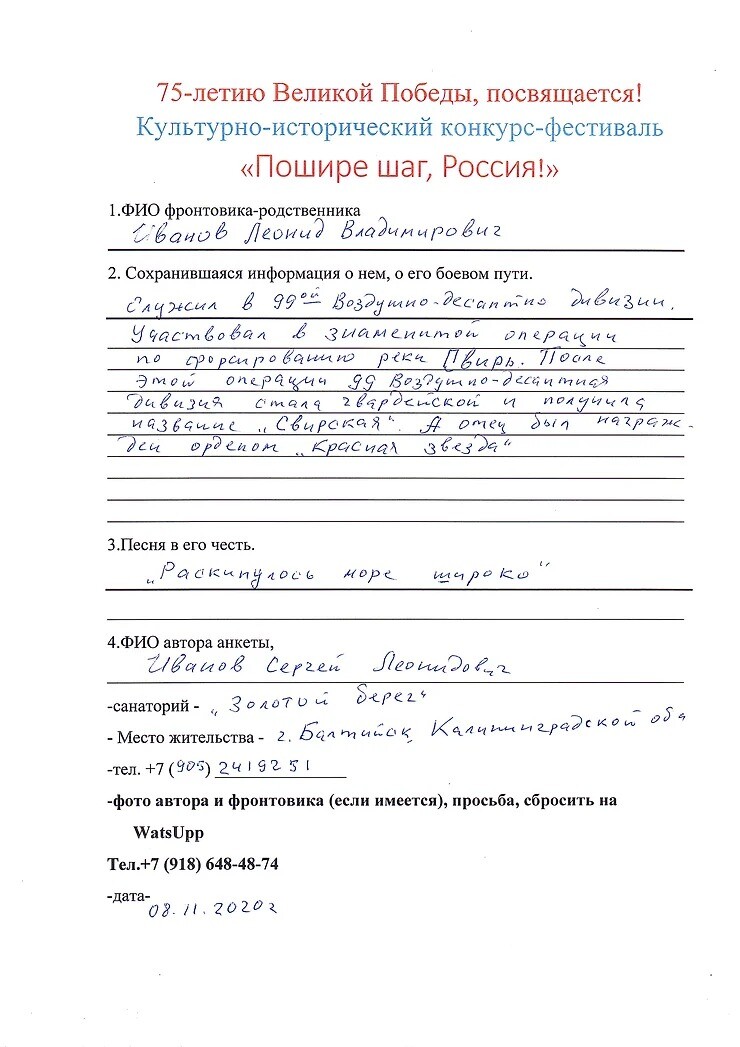 75-летию Великой Победы, посвящается!
Культурно-исторический конкурс-фестиваль
«Пошире шаг, Россия!»
1.ФИО фронтовика-родственника
Иванов Леонид Владимирович
2. Сохранившаяся информация о нем, о его боевом пути.
Служил в 99ой Воздушно-десантно дивизии.
Участвовал в знаменитой операции
по форсированию реки Свирь. После
этой операции 99 Воздушно-десантная
дивизия стала гвардейской и получила
название „Свирская“. А отец был награж-
ден орденом „Красная звезда“
3.Песня в его честь.
„Раскинулось море широко“
4.ФИО автора анкеты,
Иванов Сергей Леонидович
-санаторий - „Золотой берег“
- Место жительства - г. Балтийск, Калининградской обл
-тел. +7 (905) 2419251
-фото автора и фронтовика (если имеется), просьба, сбросить на
WatsUpp
Тел.+7 (918) 648-48-74
-дата- 08.11.2020г